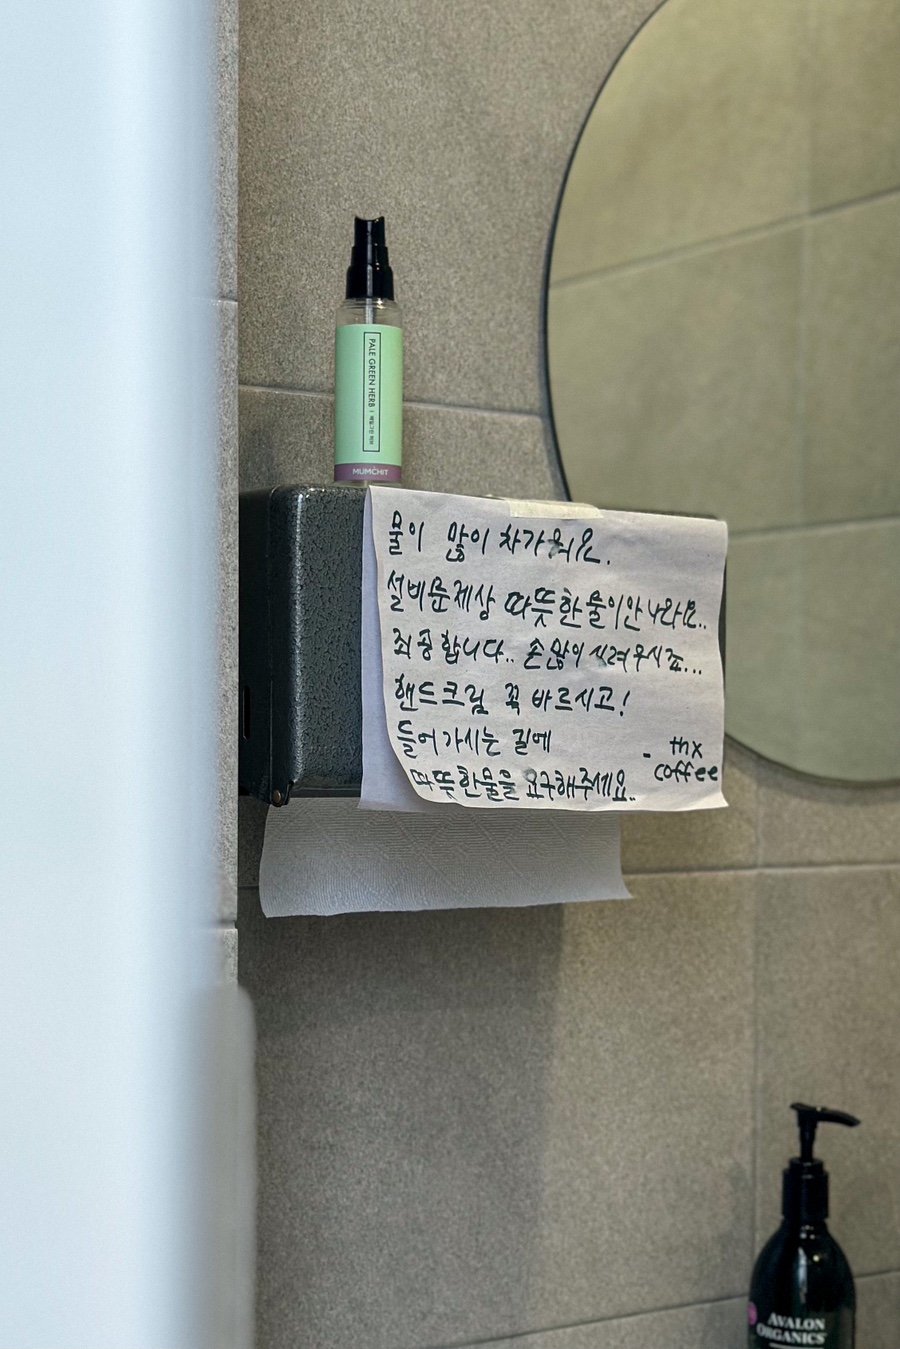 PALE GREEN HERB | 페일그린 허브
MUMCHIT
물이 많이 차가워요.
설비문제상 따뜻한물이안나와요..
죄송합니다.. 손많이시려우시죠...
핸드크림 꼭 바르시고!
들어가시는 길에
따뜻한물을 요구해주세요..
- thx
coffee
AVALON
ORGANICS